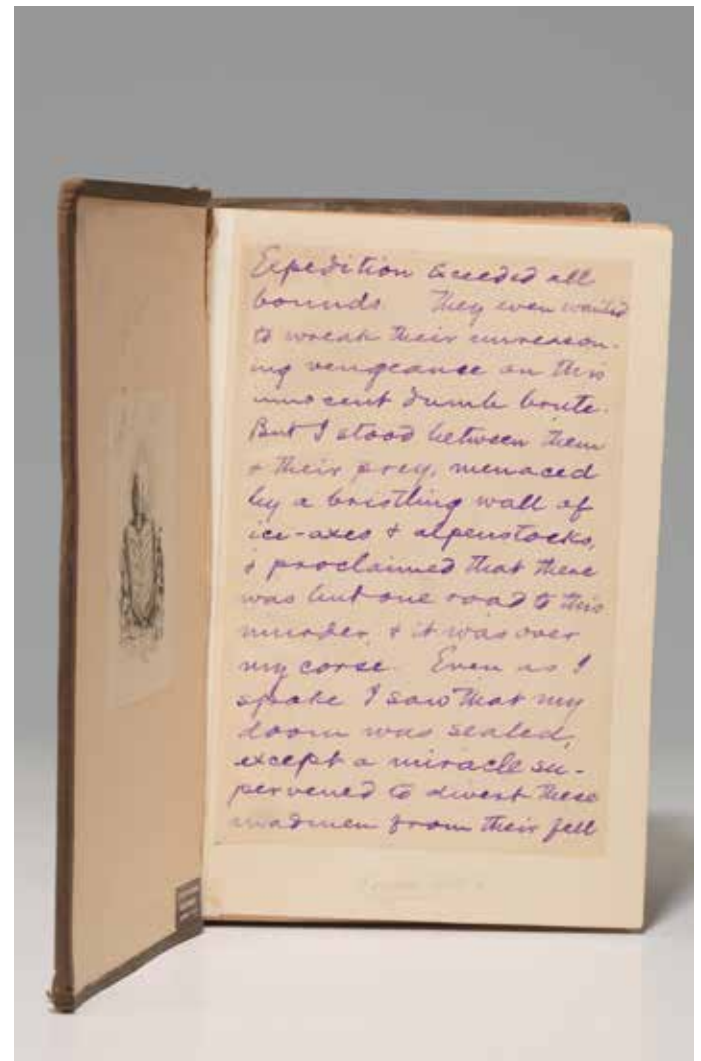 Expedition exceeded all
bounds. They even wanted
to wreak their unreason-
ing vengeance on this
innocent dumb brute.
But I stood between them
& their prey, menaced
by a bristling wall of
ice-axes & alpenstocks,
& proclaimed that there
was but one road to this
murder, & it was over
my corse. Even as I
spake I saw that my
doom was sealed,
except a miracle su-
pervened to divert these
madmen from their fell